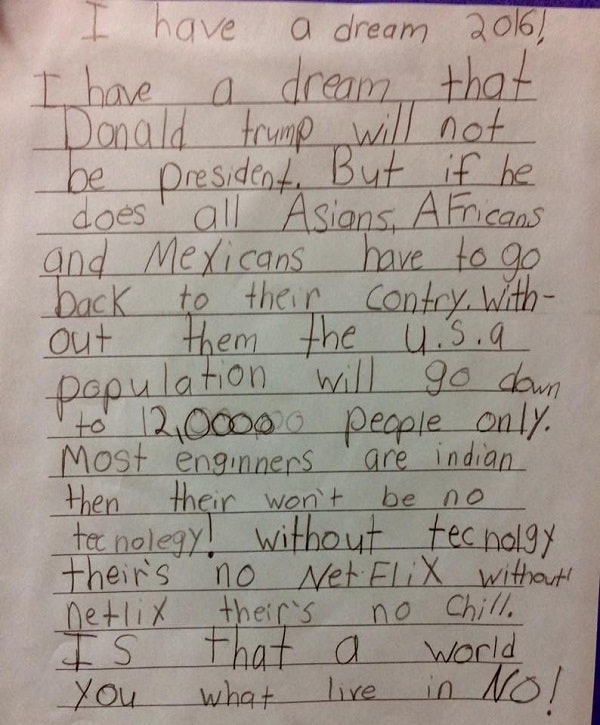 I have a dream 2016!
I have a dream that
Donald trump will not
be president. But if he
does all Asians, AFricans
and Mexicans have to go
back to their Contry. With-
out them the u.s.a
population will go down
to 12,000000 people only.
Most enginners are indian
then their won't be no
tecnolegy! without tecnolgy
their's no NetFliX without
netlix their's no Chill.
IS that a world
you what live in NO!